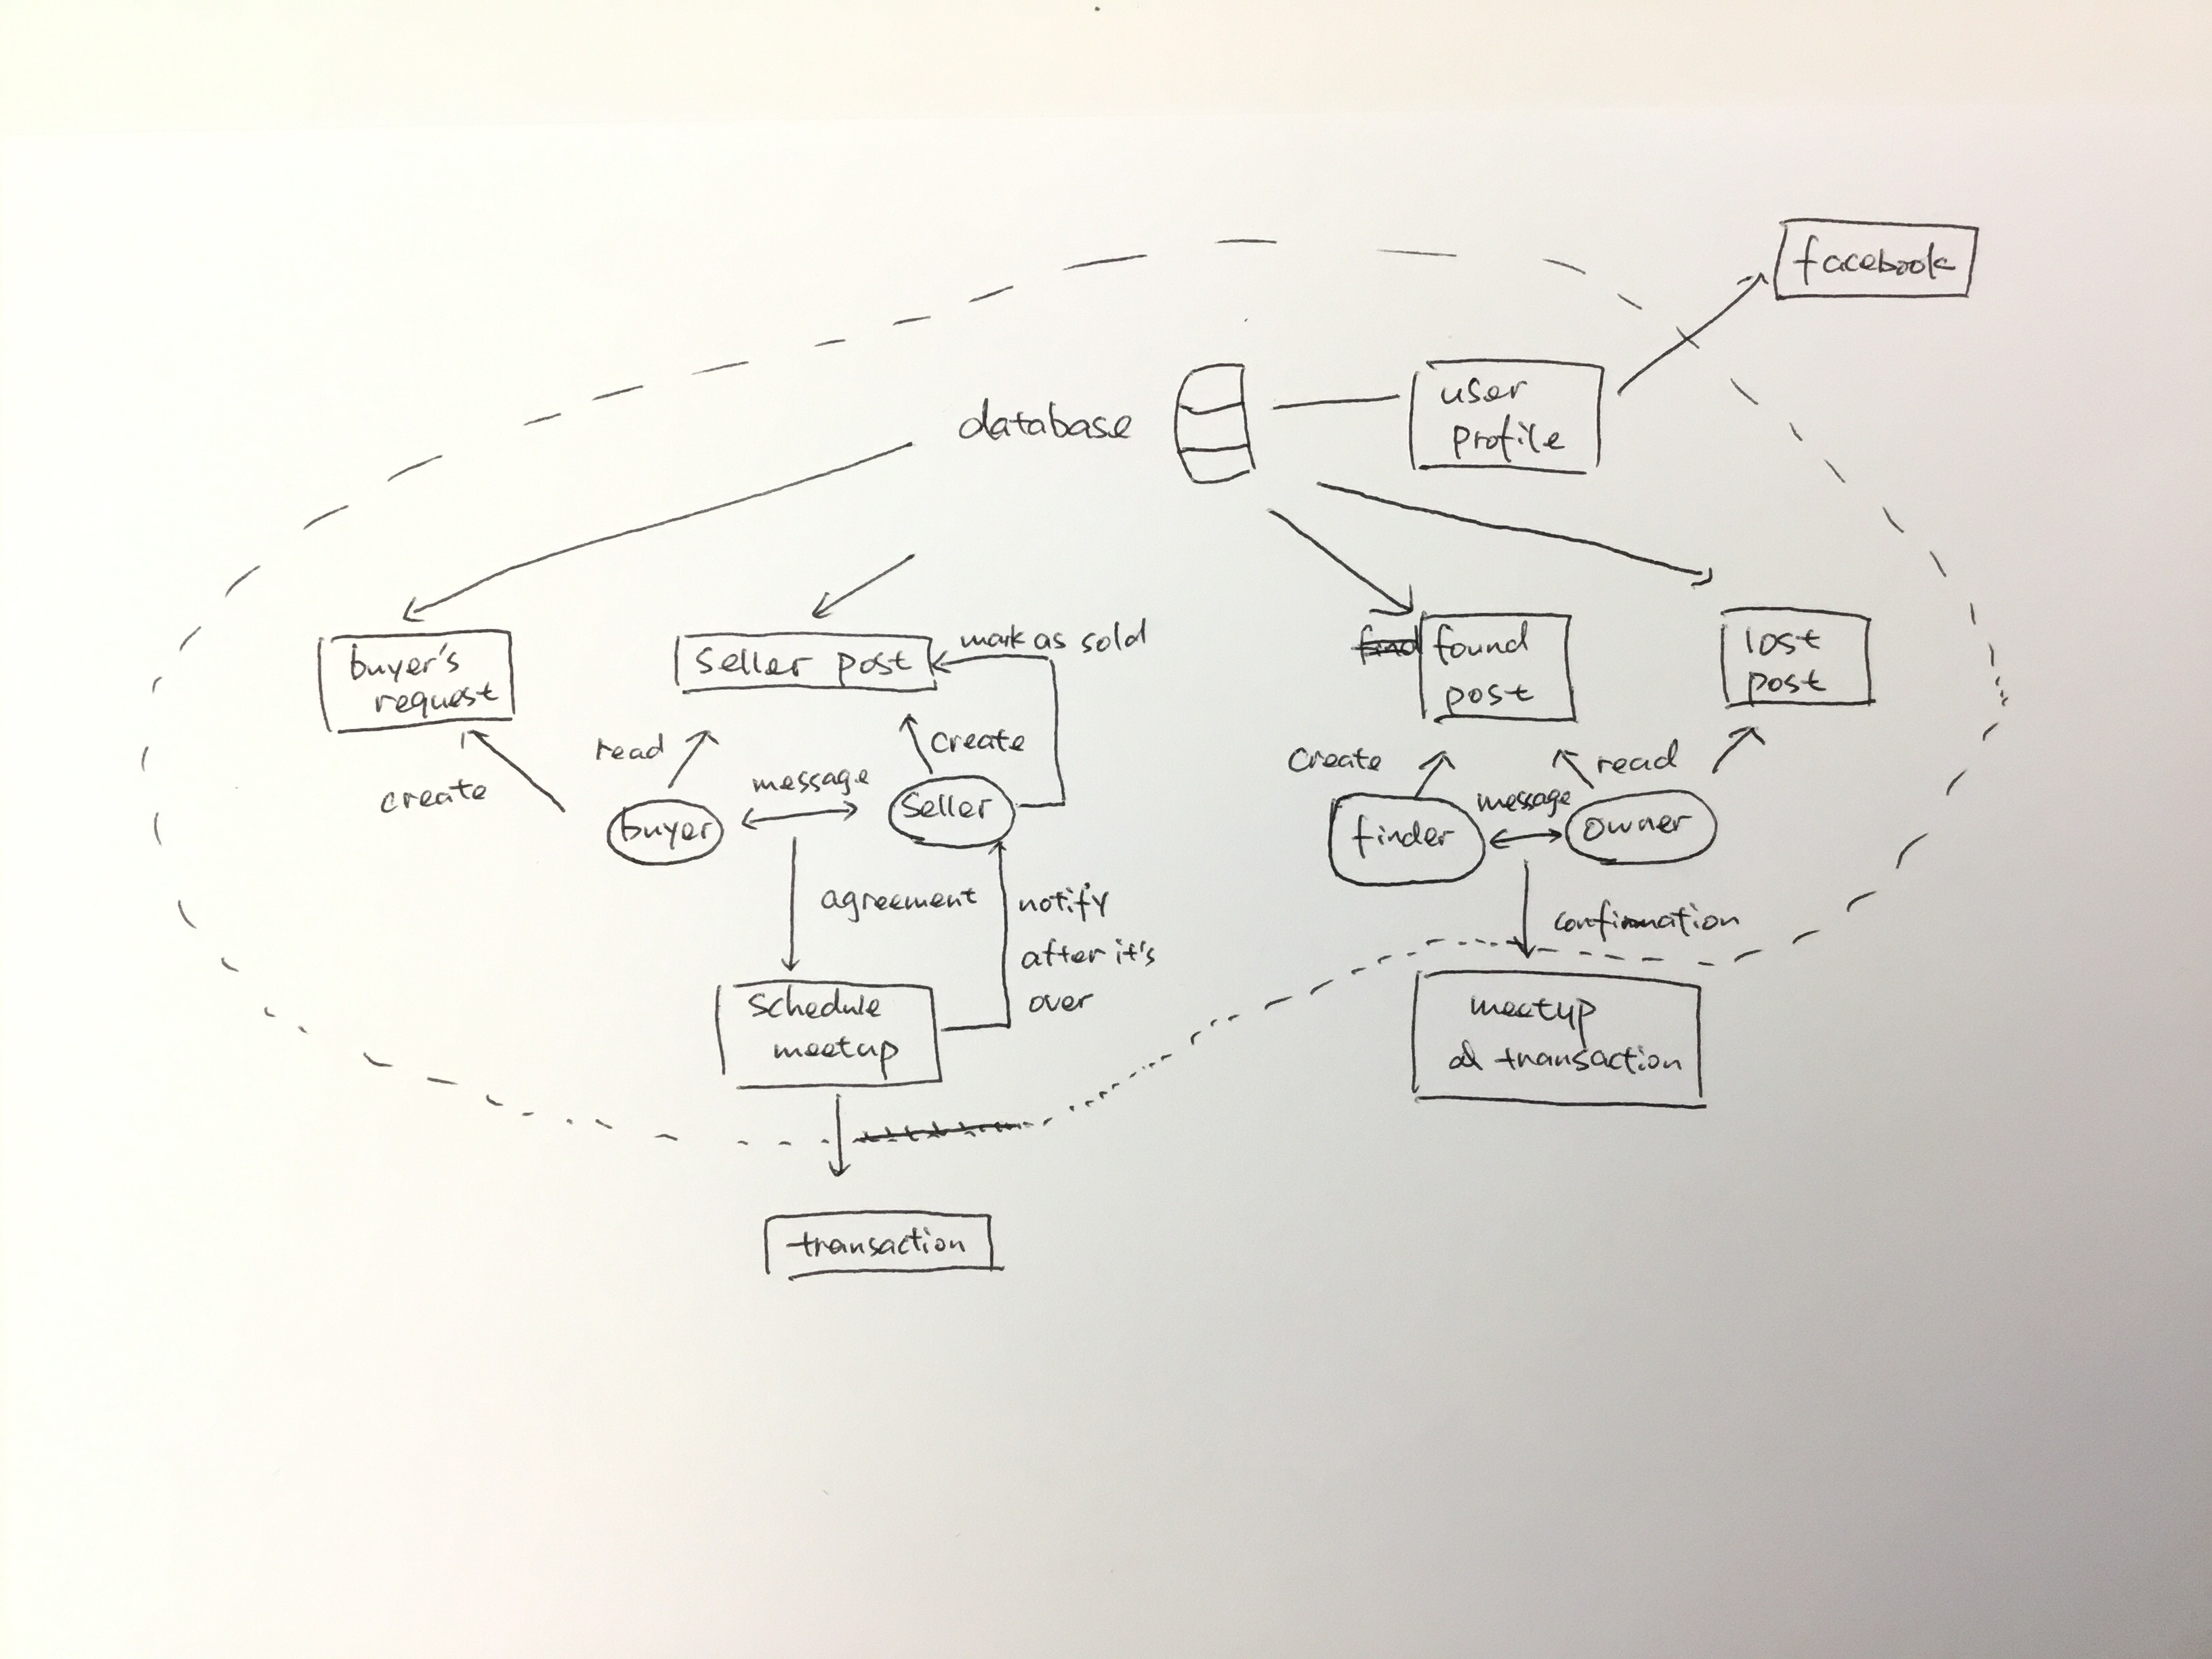 facebook
database
user
profile
buyer's
request
seller post
mark as sold
find found
post
lost
post
create
read
message
create
buyer
seller
create
message
read
finder
owner
agreement
notify
after it's
over
confirmation
schedule
meetup
meetup
transaction
transaction